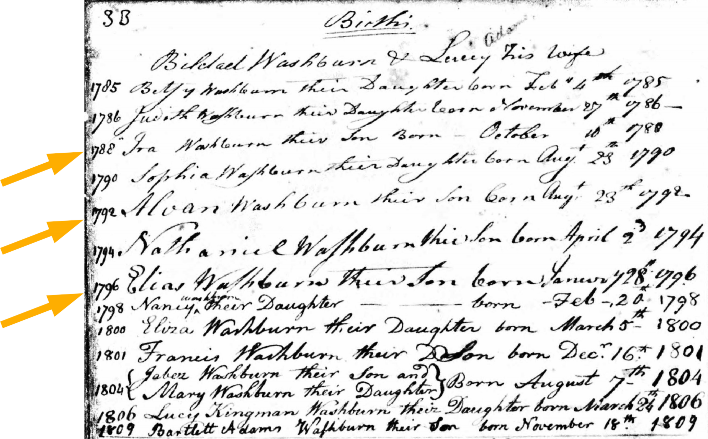 3B
Births.
Adams
Bildad Washburn & Lucy his wife
1785 Betsy Washburn their Daughter born Feb" 4th 1785
1786 Judith Washburn their Daughter born November 27th 1786 —
1788 Ira Washburn their Son Born — October 10th 1788
1790 Sophia Washburn their Daughter born Augt 23 1790
1792 Alvan Washburn their Son born Augt 23th 1792
1794 Nathaniel Washburn their Son born April 2d 1794
1796 Elias Washburn their Son born January 28th 1796
washburn
1798 Nancy their Daughter ——— born - Feb - 20th 1798
1800 Eliza Washburn their Daughter born March 5th 1800
1801 Francis Washburn their Son born Decr 16th 1801
Jabez Washburn their Son and
1804 Mary Washburn their Daughter } Born August 7th 1804
1806 Lucy Kingman Washburn their Daughter born March 24 1806
1809 Bartlett Adams Washburn their Son born November 18th 1809